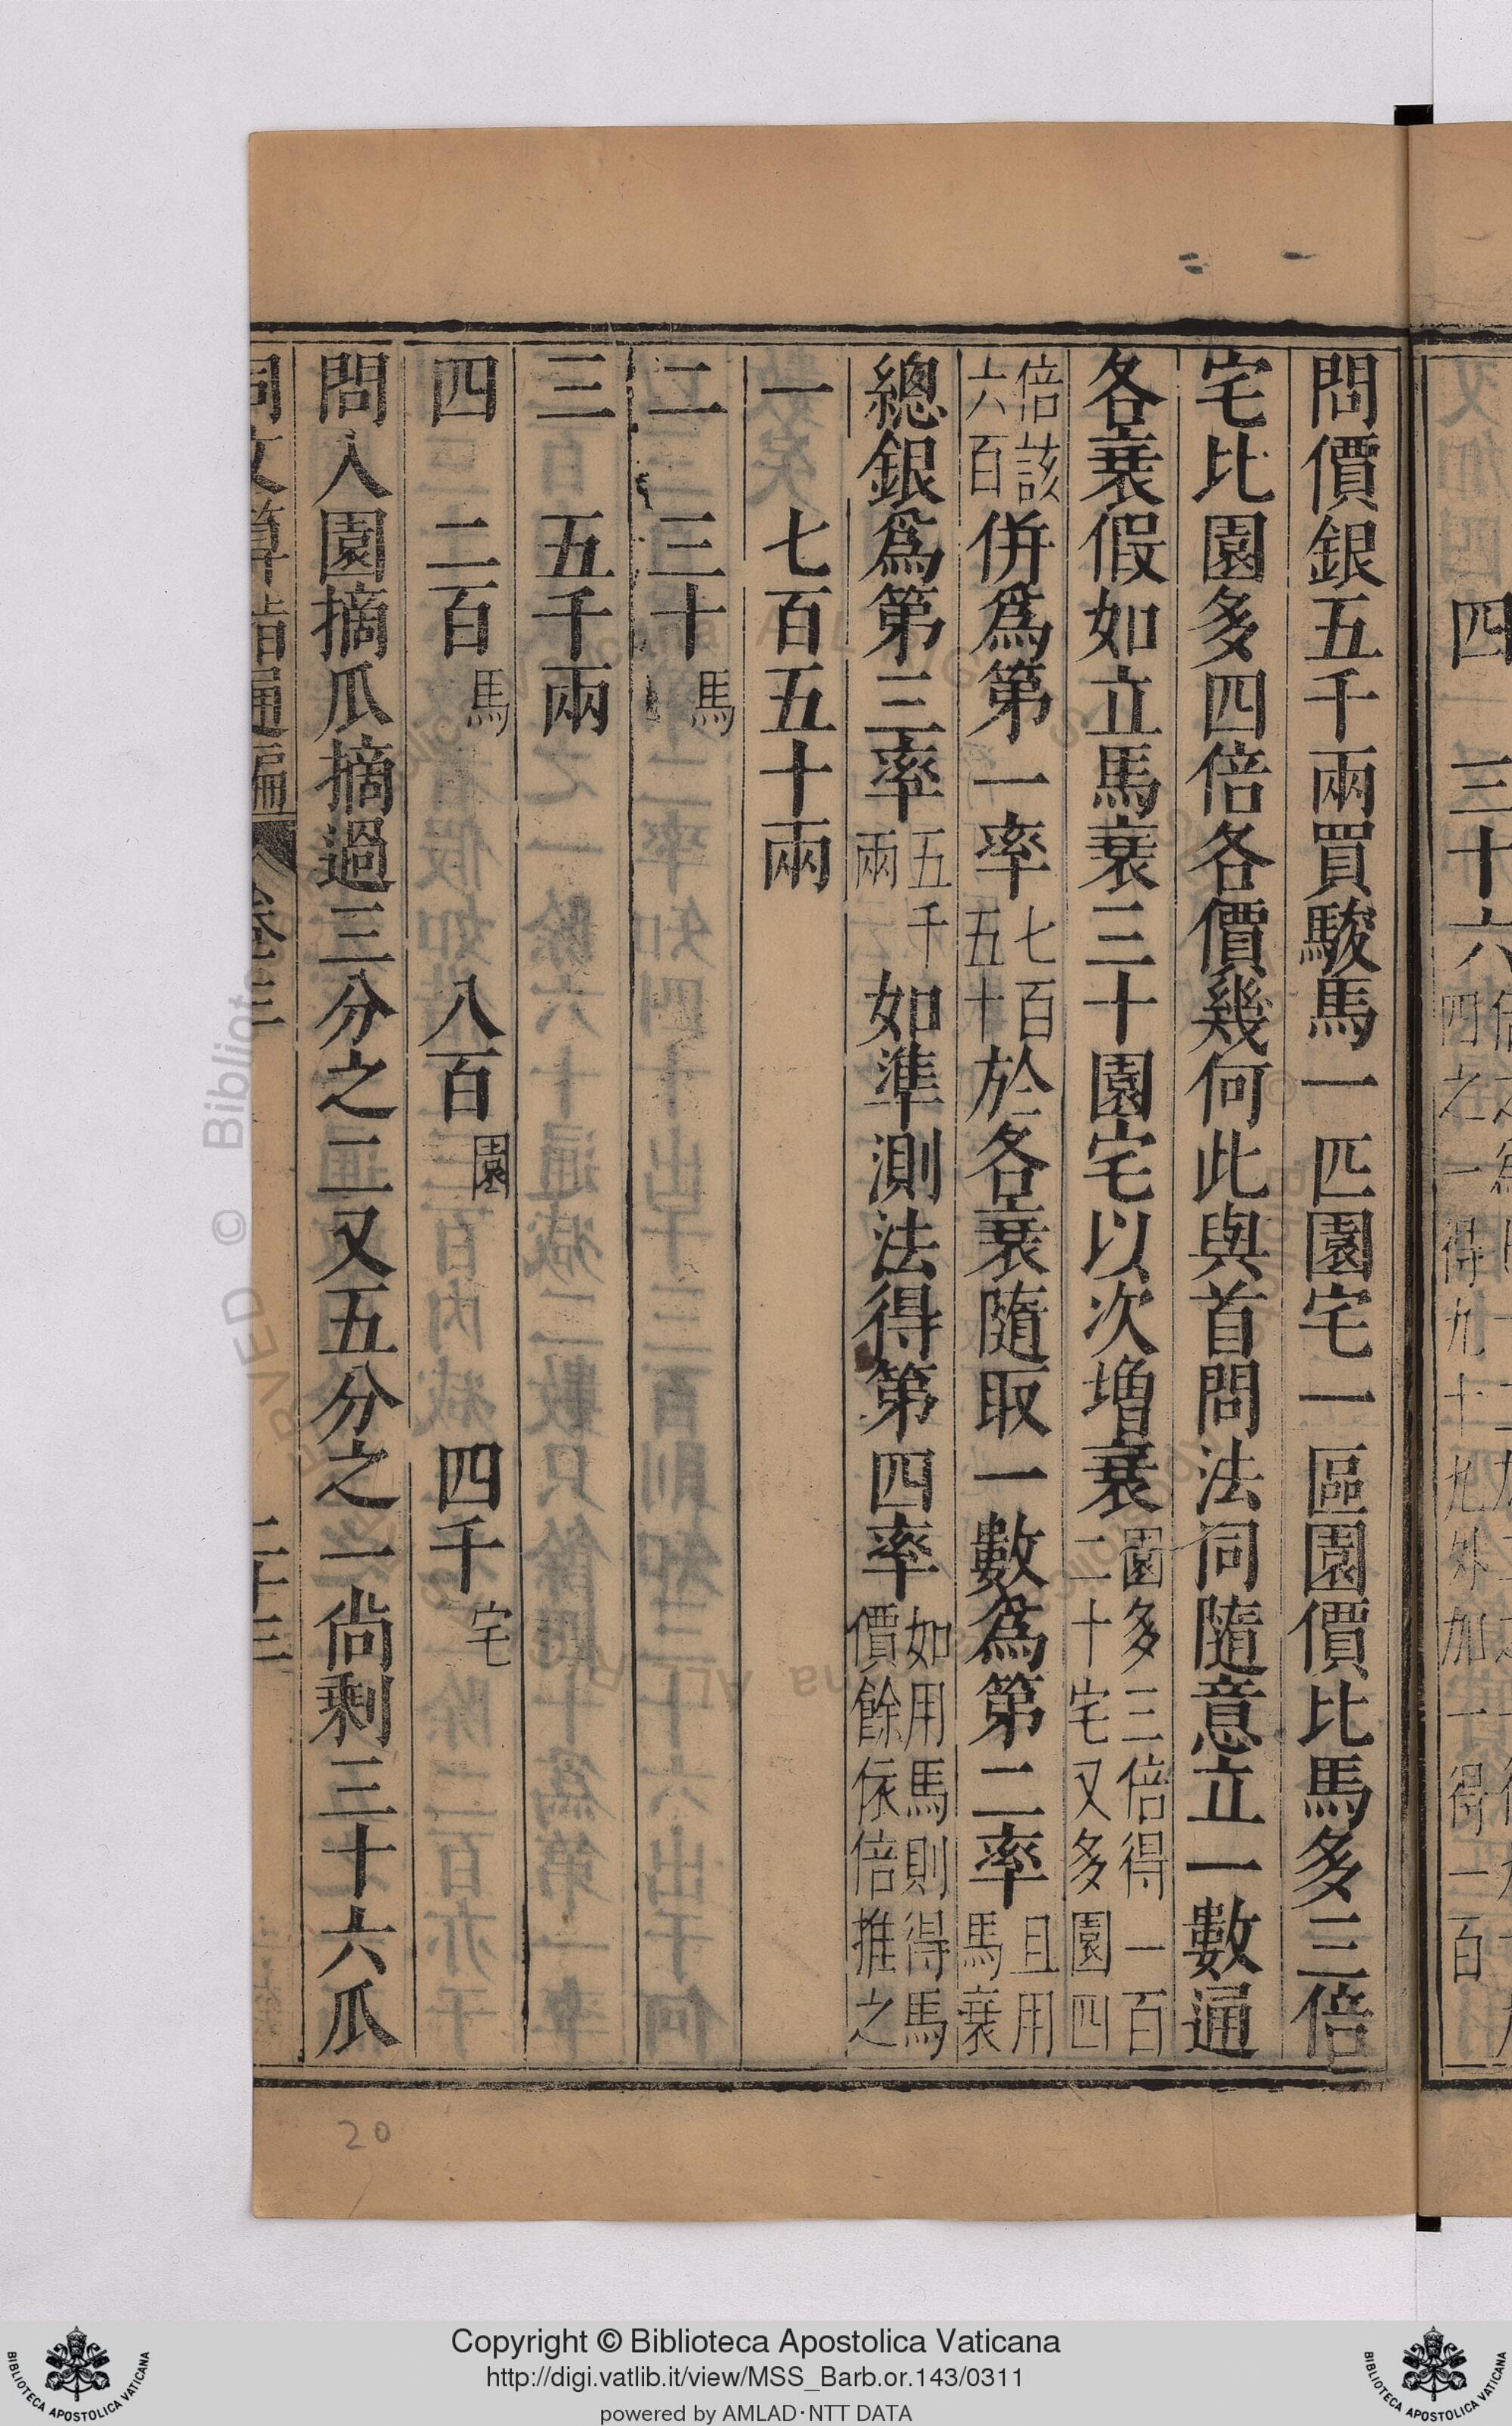 四 三十六
四之一得九十九外加一得一百
問價銀五千兩買駿馬一匹園宅一區園價比馬多三倍
宅比園多四倍各價幾何此與首問法同隨意立一數通
各衰假如立馬衰三十園宅以次增衰園多三倍得一百二十宅又多園四
倍該六百併爲第一率七百五十於各衰隨取一數爲第二率且用馬衰
總銀爲第三率五千兩如準測法得第四率如用馬則得馬價餘依倍推之
一 七百五十兩
二 三十馬
三 五千兩
四 二百馬 八百園 四千宅
問入園摘瓜摘過三分之二又五分之一尚剩三十六瓜
同文算指通編 卷三 二十三
20
Copyright © Biblioteca Apostolica Vaticana
http://digi.vatlib.it/view/MSS_Barb.or.143/0311
powered by AMLAD·NTT DATA
BIBLIOTECA APOSTOLICA VATICANA
BIBLIOTECA APOSTOLICA VATICANA